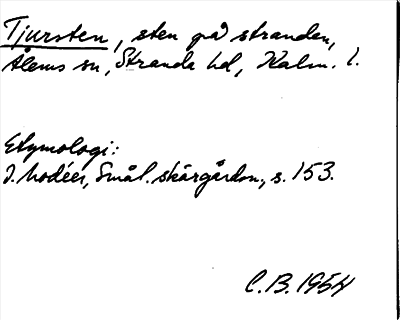 Tjursten, sten på stranden,
Ålems sn, Stranda hd, Kalm. l.
Etymologi:
I. Modéer, Smål. skärgårdsn., s. 153.
C.B. 1954